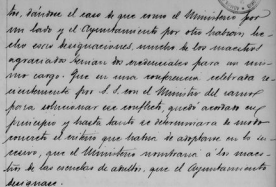 tos, dándose el caso de que como el Ministerio por
un lado y el Ayuntamiento por otro habían he-
cho esas designaciones, muchos de los maestros
agraciados tenían dos credenciales para un mis-
mo cargo. Que en una conferencia celebrada re-
cientemente por S.S. con el Ministro del ramo
para solucionar ese conflicto, quedó acordado en
principio y hasta tanto se determinara de modo
concreto el criterio que habría de adoptarse en lo su-
cesivo, que el Ministerio nombraría á los maes-
tros de las escuelas de adultos, que el Ayuntamiento
designase.